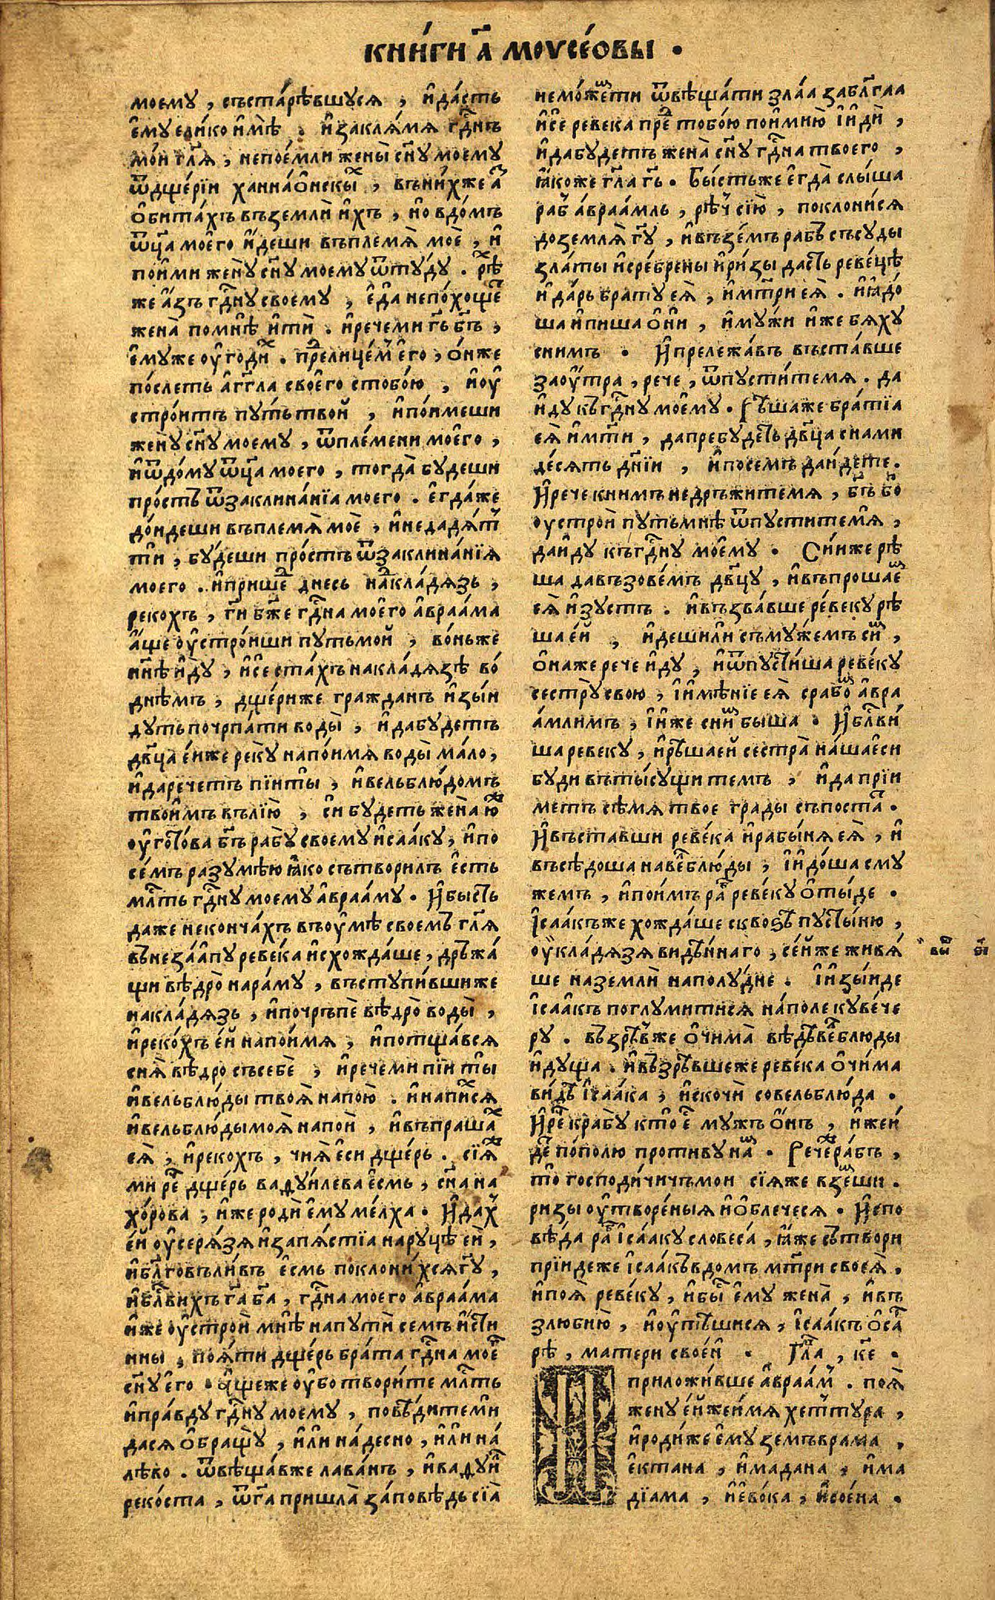 кни́ги а҃ моусе́овы .
моему , съста́рѣвшуся , и҆да́сть
є҆му є҆ли́ко и҆мѣ̀ . и҆закля́мя гд҃нъ
мо́и гл҃я , непое́мли жены̀ сн҃у моему
ѿ дще́рїи ханнао́нскы , въни́хже а҆
ѻ҆бита́хъ въземли̑ и҆хъ , но вдо́мъ
ѿц҃а мое҆го и҆́деши въплемя̀ моѐ , и҆
пои҆ми жену̀ сн҃у моему ѿтꙋ́дꙋ . рѣ
же а҆́зъ гд҃ну своему̀ , є҆да̀ непо́хоще
жена̀ помнѣ̀ и҆ти̑ . и҆речеми гь҃ бг҃ъ ,
є҆му́же оу҆годи́ . пре́лице́м є҆го , ѻ҆́нже
по́слетъ а҆́гг҃ла свое҆го стобо́ю , и҆оу҆
стро́итъ пу́тьтвой , и҆по́имеши
жену̀ сн҃у моему , ѿпле́мени мое҆го ,
и҆ѿдому ѿц҃а моего , тогда̀ будеши
про́стъ ѿзаклина́нїа моего . є҆гда́же
до́идеши въплемя̀ моѐ , и҆недадя́т
ти̑ , бу́деши про́стъ ѿзаклина́нїя
моего . и҆прише днесь на кладязь ,
рекохъ , г҃и бж҃е гд҃на мое҆го а҆враа́ма
а҆́ще оу҆стро́иши путьмой , во́ньже
нн҃ѣ и҆ду̀ , и҆се ста́хъ накла́дязѣ во́
днѣмъ , дще́риже гражданъ и҆зы́и
дутъ почрпа́ти воды̀ , и҆дабудетъ
дв҃ца є҆́иже реку̀ напо́имя воды̀ ма́ло ,
и҆даречетъ пі́и ты , и҆вельблю́домъ
твои҆мъ въле́ю , си будетъ жена̀ ю҆
оу҆гото́ва бг҃ъ рабу̀ своему и҆саа́ку , и҆по
се́мъ разумѣ́ю ꙗ҆ко сътвори́лъ є҆сть
мл҃ть гд҃ну моему а҆враа́му . и҆бы́сть
даже неконча́хъ въоу҆мѣ̀ своемъ гл҃я
вънеза́апу реве́ка и҆схожда́ше , дръжа́
щи вѣдро̀ нараму , въступи́вшиже
накла́дязь , и҆почръпѐ вѣдро̀ воды̀ ,
и҆реко́хъ є҆́й напо́имя , и҆потща́вся
сня̀ вѣдро̀ съсебѐ , и҆речеми пі́и ты
и҆вельблю́ды твоя̀ напою . и҆напи́ся
и҆вельблю́дымоя̀ напои̑ , и҆въпраша
є҆я̀ , и҆рекохъ , чия̀ є҆си дще́рь . сїя́
ми ре̑ дще́рь ваѳу́илева є҆смь , сн҃а на
хо́рова , и҆же роди̑ є҆му ме́лха . и҆да́х
є҆́й оу҆серя́зя и҆запя́стїа наруцѣ̀ є҆́й ,
и҆блг҃оволи́въ є҆смь поклони́хся гу҃ ,
и҆блв҃и́хъ га҃ ба҃ , гд҃на моего а҆враа́ма
и҆же оу҆строй мнѣ̀ напути̑ семъ и҆сти
нны , поя́ти дще́рь бра́та гд҃на мое҆
сн҃у є҆го . а҆́щеже оу҆́бо творите мл҃ть
и҆пра́вду гд҃ну моему , повѣ́дитеми
дася ѻ҆браща̀ , и҆ли на́десно , и҆ли на́
лѣво . ѿвѣща́вже лава́нъ , и҆ваѳу́и
реко́ста , ѿга҃ пришла̀ за́повѣдь сїа
немо́жети ѿвѣща́ти зла́а заблг҃аа
и҆сѐ ревека пре тобо́ю пои҆мію̀ и҆и҆ди̑ ,
и҆дабудетъ жена̀ сн҃у гд҃на твоего ,
ꙗ҆́коже гл҃а гь҃ . Бы́стьже є҆гда̀ слы́ша
раб а҆враа́мль , рѣ́ч сїю̀ , поклони́ся
доземля̀ гу҃ , и҆възе́мъ рабъ съсуды
зла́ты и҆сре́брены и҆ри́зы дастъ реве́цѣ
и҆да́ръ бра́ту є҆я̀ , и҆мт҃ри є҆я . и҆ꙗ҆до́
ша и҆пи́ша ѻ҆́ни , и҆му́жи и҆же бя́ху
сни́мъ . И҆прележа́въ въста́вше
заоу҆́тра , рече , ѿпусти́темя . да
и҆ду къ гд҃ну мое҆му . Рѣшаже бра́тїа
є҆я̀ и҆мт҃и , дапребудетъ дв҃ца снами
де́сять дн҃їи , и҆посемъ да и҆́детъ .
И҆рече книмъ недръжи́темя , бг҃ъ бо̀
оустрой путьмнѣ̀ ѿпустите́мя ,
даи҆ду къ гд҃ну мое҆му . Они́же рѣ
ша давъзове́мъ дв҃цу , и҆въпрошае
є҆я̀ и҆зу́стъ . и҆възва́вше реве́ку рѣ
ша є҆́й , и҆деши ли̑ съму́жемъ си ,
ѻ҆на́же рече и҆ду , и҆ѿпусти́ша реве́ку
сестру̀ свою , и҆и҆мѣ́нїе є҆я̀ срабо а҆вра
а́млимъ , и҆и҆же сни быша . И҆блв҃и́
ша ревеку , и҆рѣ́ша є҆й сестра̀ на́ша є҆си
буди въты́сущи темъ , и҆да прїи
метъ сѣ́мя твое гра́ды съпоста .
И҆въставши реве́ка и҆рабы́ня є҆я̀ , и҆
въсѣ́доша навеблю́ды , и҆и҆до́ша сму
жемъ , и҆пои́мъ ра реве́ку ѻ҆ты́де .
І҆саа́къже хожда́ше сквоѕѣ̀ пусты́ню ,
оу҆кла́дязя ви́дѣннаго , се́йже живя́
ше наземли̑ наполу́дне . И҆и҆зы́иде
І҆саа́къ поглуми́тися на́поле кувече
ру . възрѣ́вже ѻ҆чима̀ вѣдѣ веблюды
и҆ду́ща . и҆възрѣ́вшеже реве́ка ѻ҆чима
ви́дѣ І҆саа́ка , и҆скочи̑ совельблю́да .
И҆ре крабу кто є҆ мужъ ѻ҆нъ , и҆же и҆
де по́полю проти́ву на . Рече́же рабъ ,
то господи́чичъ мои сїя́же взеши .
ри́зы оу҆творе́ныя и҆ѻ҆блечеся . И҆спо
вѣ́да ра І҆саа́ку словеса̀ , ꙗ҆́же сътвори
прїидеже І҆саа́къ вдомъ мт҃ри своея̀ ,
и҆поя реве́ку , и҆бы є҆му жена̀ , и҆въ
злюбию̀ , и҆оу҆тѣ́шися , І҆саа́къ ѻ҆ са
рѣ , матери своей . Гла҃ , ке .
приложи́вше а҆враа́м . поя̀
жену є҆́йже и҆мя хетту́ра ,
и҆роди́же є҆му земъвра́ма ,
є҆кта́на , и҆мада́на , и҆ма
дїа́ма , и҆є҆во́ка , и҆сое́на .